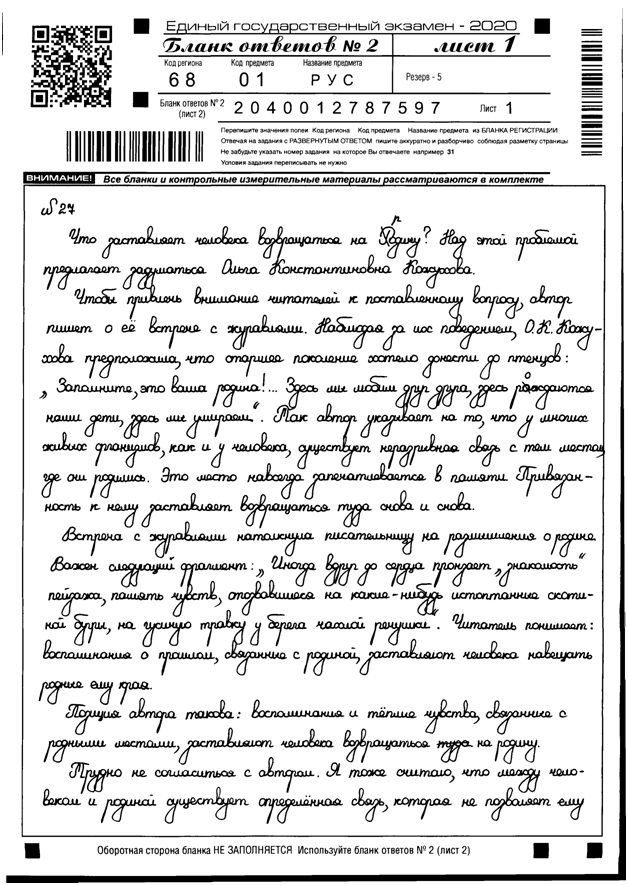 Единый государственный экзамен - 2020
Бланк ответов № 2 лист 1
Код региона Код предмета Название предмета
68 01 РУС Резерв - 5
Бланк ответов № 2 (лист 2) 2040012787597 Лист 1
Перепишите значения полей Код региона Код предмета Название предмета из БЛАНКА РЕГИСТРАЦИИ
Отвечая на задания с РАЗВЕРНУТЫМ ОТВЕТОМ пишите аккуратно и разборчиво соблюдая разметку страницы
Не забудьте указать номер задания на которое Вы отвечаете например 31
Условия задания переписывать не нужно
ВНИМАНИЕ! Все бланки и контрольные измерительные материалы рассматриваются в комплекте
№27
Что заставляет человека возвращаться на родину? Над этой проблемой
предлагает задуматься Ольга Константиновна Кожухова.
Чтобы привлечь внимание читателей к поставленному вопросу, автор
пишет о её встрече с журавлями. Наблюдая за их поведением, О.К. Кожу-
хова предположила, что старшее поколение хотело донести до птенцов:
„Запомните, это ваша родина!... Здесь мы любим друг друга, здесь рождаются
наши дети, здесь мы умираем". Так автор указывает на то, что у многих
живых организмов, как и у человека, существует неразрывная связь с тем местом,
где они родились. Это место навсегда запечатлевается в памяти. Привязан-
ность к нему заставляет возвращаться туда снова и снова.
Встреча с журавлями натолкнула писательницу на размышления о родине.
Важен следующий фрагмент: „Иногда вдруг до сердца пронзает „знакомость"
пейзажа, память чувств, отозвавшиеся на какие-нибудь истоптанные скоти-
ной бугры, на гусиную травку у берега чахлой речушки". Читатель понимает:
воспоминания о прошлом, связанные с родиной, заставляют человека навещать
родные ему края.
Позиция автора такова: воспоминания и тёплые чувства, связанные с
родными местами, заставляют человека возвращаться туда на родину.
Трудно не согласиться с автором. Я тоже считаю, что между чело-
веком и родиной существует определённая связь, которая не позволяет ему
Оборотная сторона бланка НЕ ЗАПОЛНЯЕТСЯ Используйте бланк ответов № 2 (лист 2)